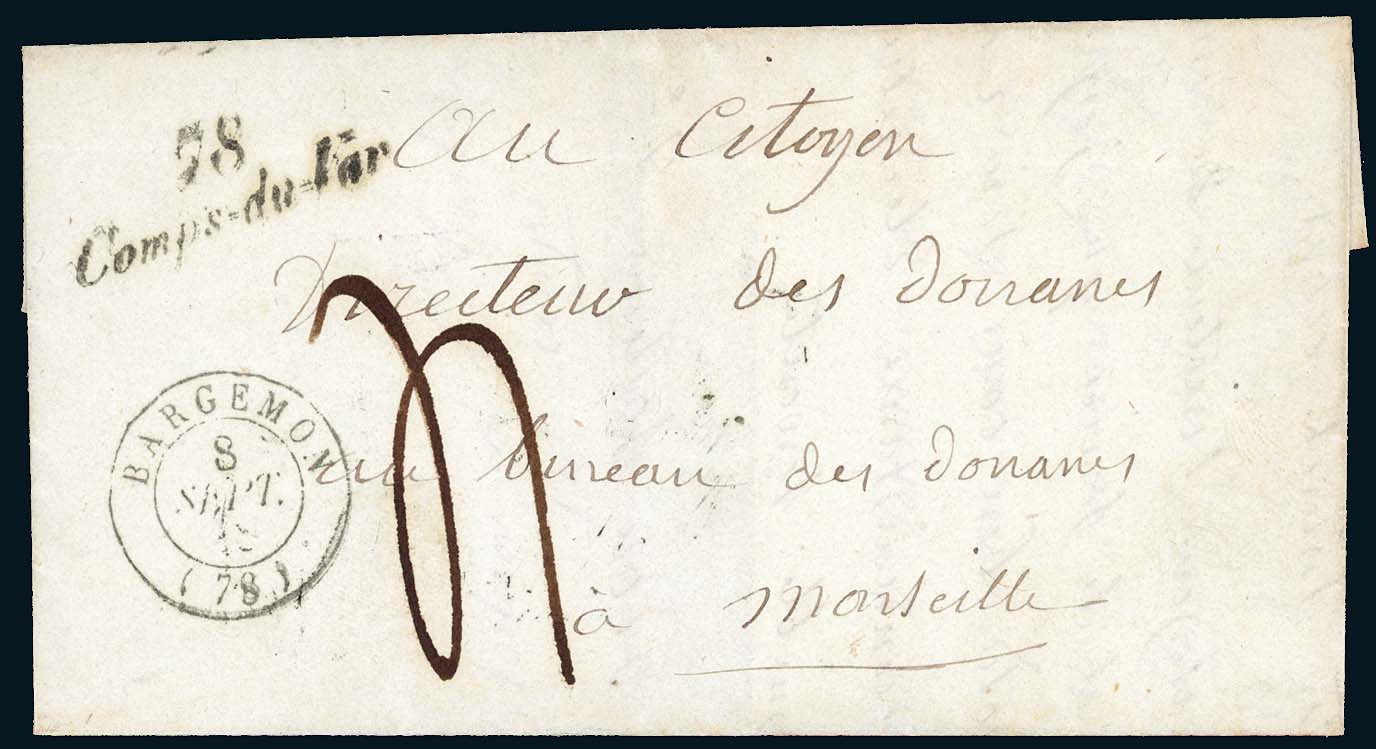 78
Comps-du-Var
au Citoyen
Directeur des Douanes
BARGEMON
8
SEPT.
(78)
au bureau des douanes
à Marseille